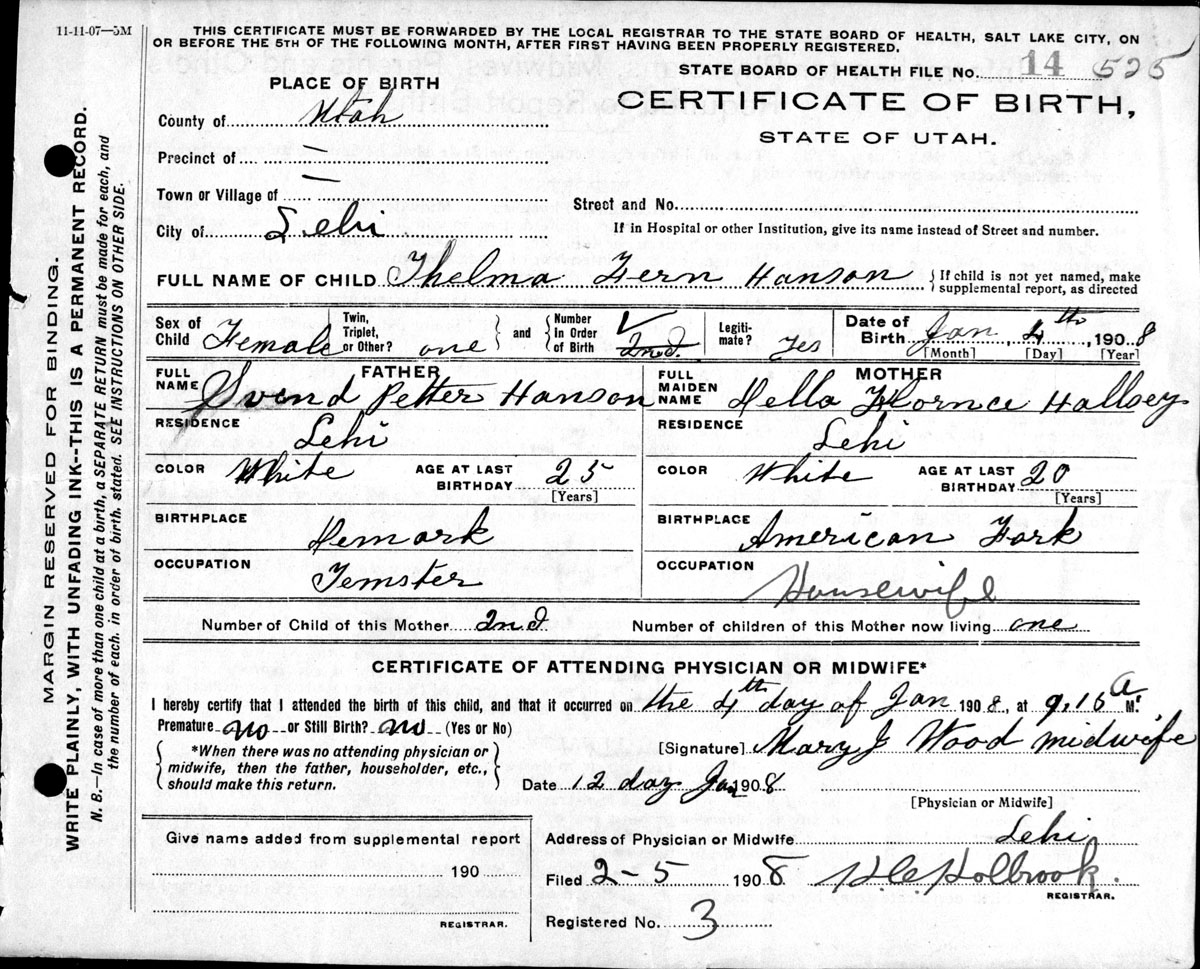 11-11-07—5M
THIS CERTIFICATE MUST BE FORWARDED BY THE LOCAL REGISTRAR TO THE STATE BOARD OF HEALTH, SALT LAKE CITY, ON
OR BEFORE THE 5TH OF THE FOLLOWING MONTH, AFTER FIRST HAVING BEEN PROPERLY REGISTERED.
STATE BOARD OF HEALTH FILE No. 14 525
PLACE OF BIRTH
CERTIFICATE OF BIRTH,
STATE OF UTAH.
County of Utah
Precinct of —
Town or Village of —
Street and No.
City of Lehi
If in Hospital or other Institution, give its name instead of Street and number.
FULL NAME OF CHILD Thelma Fern Hanson {If child is not yet named, make
supplemental report, as directed
Sex of Child Female
Twin, Triplet, or Other? one
and
Number In Order of Birth 2nd.
Legiti-mate? Yes
Date of Birth Jan 4th, 1908
[Month] [Day] [Year]
FATHER
FULL NAME Svend Petter Hanson
RESIDENCE Lehi
COLOR White AGE AT LAST BIRTHDAY 25
[Years]
BIRTHPLACE Demark
OCCUPATION Temster
MOTHER
FULL MAIDEN NAME Della Flornce Hallsey
RESIDENCE Lehi
COLOR White AGE AT LAST BIRTHDAY 20
[Years]
BIRTHPLACE American Fork
OCCUPATION Housewife
Number of Child of this Mother 2nd. Number of children of this Mother now living one
CERTIFICATE OF ATTENDING PHYSICIAN OR MIDWIFE*
I hereby certify that I attended the birth of this child, and that it occurred on the 4th day of Jan 1908, at 9.15 A. M.
Premature no or Still Birth? no (Yes or No)
*When there was no attending physician or
midwife, then the father, householder, etc.,
should make this return.
[Signature] Mary J Wood midwife
Date 12 day Jan 1908
[Physician or Midwife]
Give name added from supplemental report
190
REGISTRAR.
Address of Physician or Midwife Lehi
Filed 2-5 1908 H.C. Holbrook.
REGISTRAR.
Registered No. 3
MARGIN RESERVED FOR BINDING.
WRITE PLAINLY, WITH UNFADING INK--THIS IS A PERMANENT RECORD.
N. B.—In case of more than one child at a birth, a SEPARATE RETURN must be made for each, and
the number of each. in order of birth. stated. SEE INSTRUCTIONS ON OTHER SIDE.